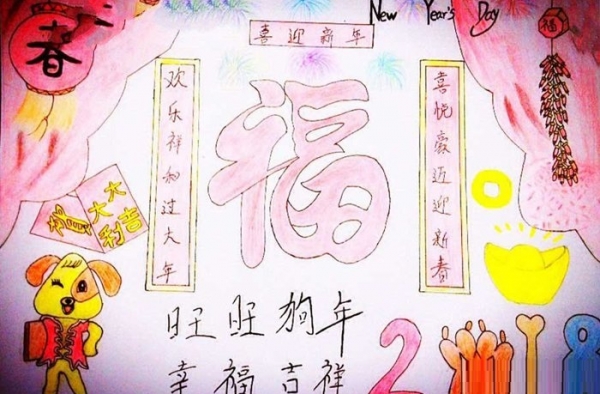 春
New Year's Day
喜迎新年
福
欢乐祥和过大年
福
喜悦豪迈迎新春
大吉
大利
旺旺狗年
幸福吉祥
2018